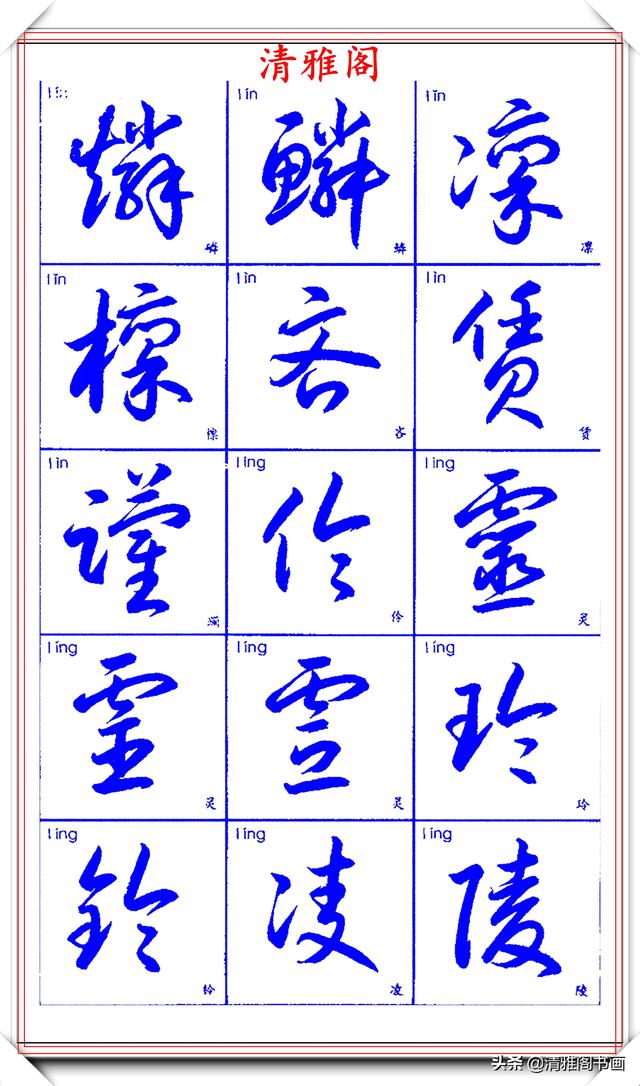 清雅阁
lín lín lǐn
燐 鳞 凛
磷 鳞 凛
lǐn lìn lìn
檩 吝 赁
檩 吝 赁
lìn líng líng
伶 靈
伶 灵
líng líng líng
玲
灵 灵 玲
líng líng líng
鈴 凌 陵
铃 凌 陵
头条 @清雅阁书画